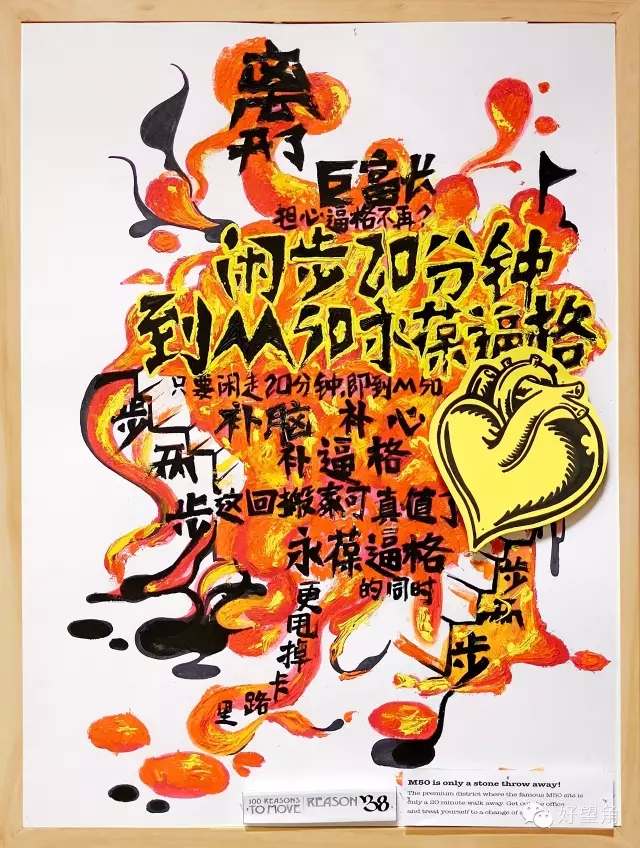 离
开了
巨富长
担心逼格不再?
闲步20分钟
到M50永葆逼格
只要闲走20分钟,即到M50
补脑 补心
补逼格
这回搬家可真值了
永葆逼格
的同时
更甩掉卡
路里
一步
两步
一步两步
100 REASONS
TO MOVE
REASON 38
M50 is only a stone throw away!
The premium district where the famous M50 sits is
only a 20 minute walk away. Get out the office
and treat yourself to a change of
好望角